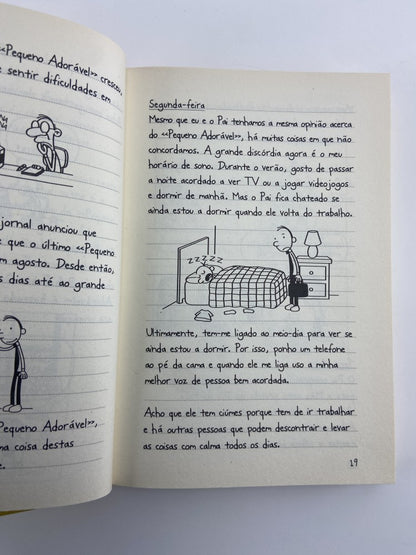 «Pequeno Adorável» cresceu,
sentir dificuldades em
jornal anunciou que
que o último «Pequeno
m agosto. Desde então,
s dias até ao grande
Pequeno Adorável»,
ma coisa destas
Segunda-feira
Mesmo que eu e o Pai tenhamos a mesma opinião acerca
do «Pequeno Adorável», há muitas coisas em que não
concordamos. A grande discórdia agora é o meu
horário de sono. Durante o verão, gosto de passar
a noite acordado a ver TV ou a jogar videojogos
e dormir de manhã. Mas o Pai fica chateado se
ainda estou a dormir quando ele volta do trabalho.
ZZZZZ
Ultimamente, tem-me ligado ao meio-dia para ver se
ainda estou a dormir. Por isso, ponho um telefone
ao pé da cama e quando ele me liga uso a minha
melhor voz de pessoa bem acordada.
Acho que ele tem ciúmes porque tem de ir trabalhar
e há outras pessoas que podem descontrair e levar
as coisas com calma todos os dias.
19